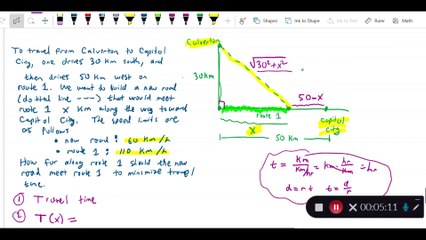 Draw
To travel from Calverton to Capitol
City, one drives 30 km south, and
then drives 50 km west on
route 1. We want to build a new road
(dotted line ---) that would meet
route 1 x km along the way toward
Capitol City. The speed limits are
as follows
• new road : 60 km/h
• route 1 : 110 km/h
How far along route 1 should the new
road meet route 1 to minimize travel
time.
① Travel time
② T(x) =
Calverton
30km
√30²+x²
50-x
route 1
x
capitol
city
50 km
d=rt t= d/r
00:05:11